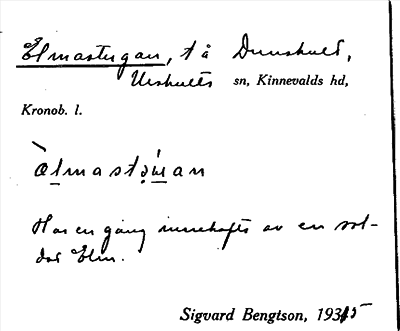 Elmastugan, t å Dunshult,
Urshults sn, Kinnevalds hd,
Kronob. l.
Har en gång innehafts av en sol-
dat Elm.
Sigvard Bengtson, 1935